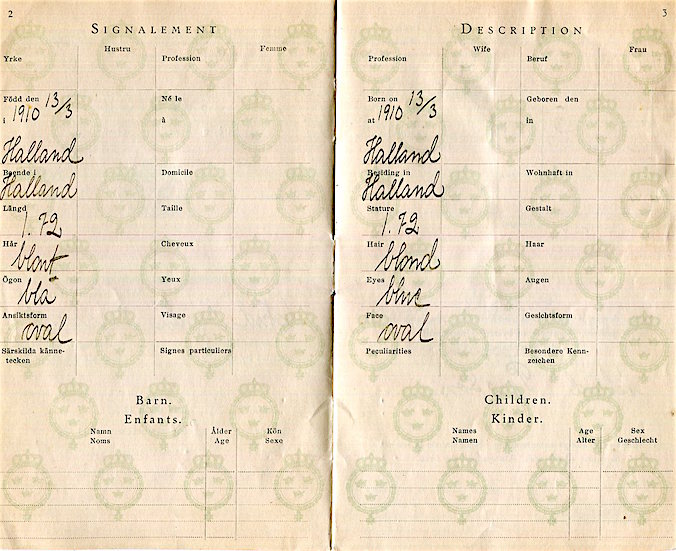 2
SIGNALEMENT
Hustru Femme
Yrke Profession
Född den 13/3 Né le
i 1910 à
Halland
Boende i Domicile
Halland
Längd Taille
1.72
Hår Cheveux
blont
Ögon Yeux
blå
Ansiktsform Visage
oval
Särskilda känne- Signes particuliers
tecken
Barn.
Enfants.
Namn Ålder Kön
Noms Age Sexe
3
DESCRIPTION
Wife Frau
Profession Beruf
Born on 13/3 Geboren den
at 1910 in
Halland
Residing in Wohnhaft in
Halland
Stature Gestalt
1.72
Hair Haar
blond
Eyes Augen
blue
Face Gesichtsform
oval
Peculiarities Besondere Kenn-
zeichen
Children.
Kinder.
Names Age Sex
Namen Alter Geschlecht